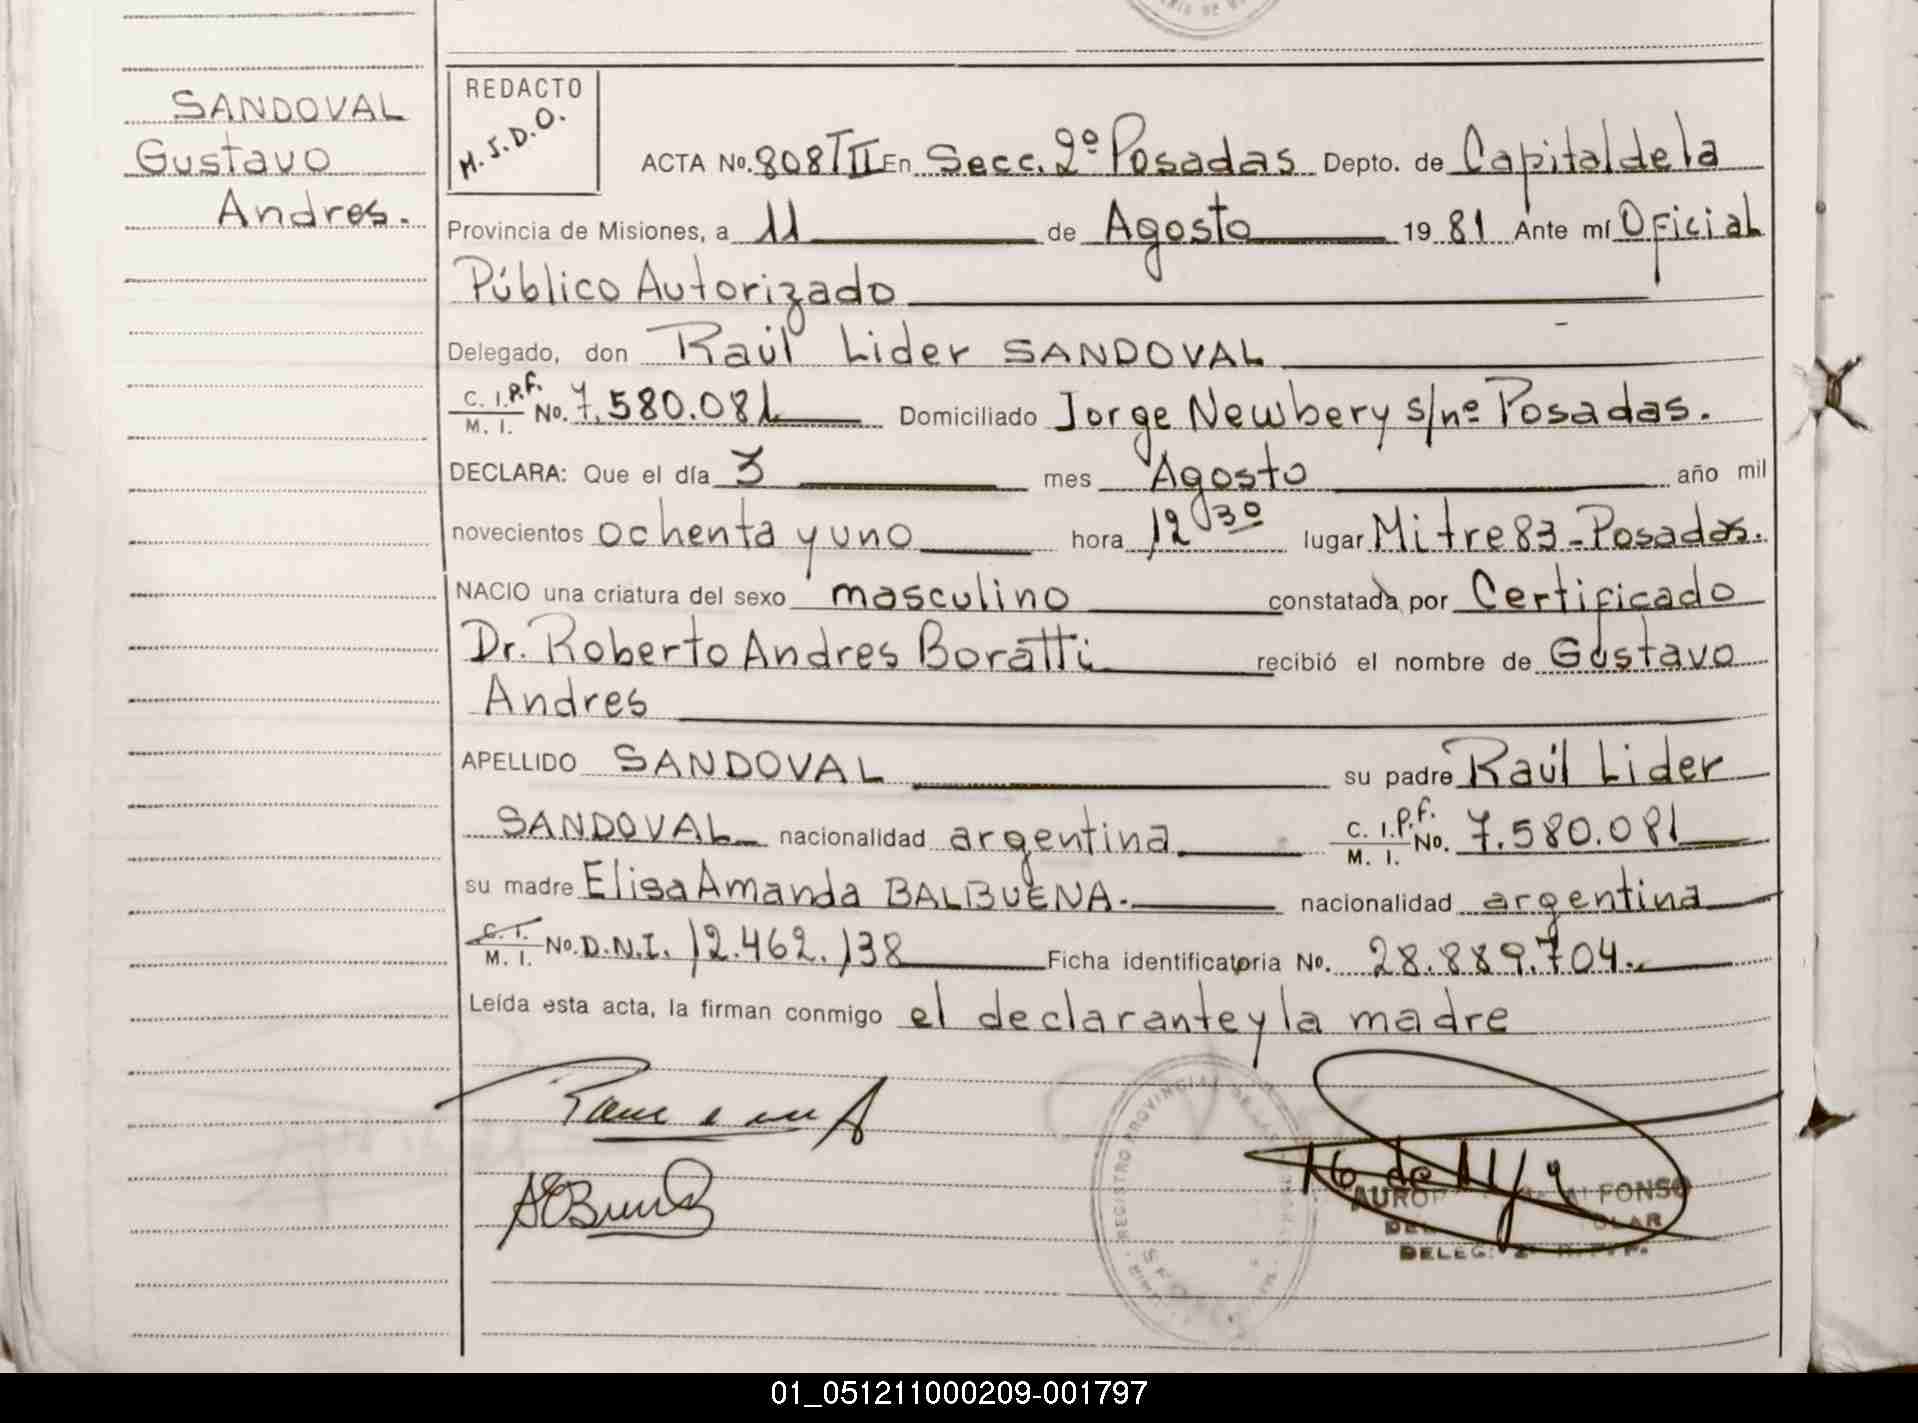 SANDOVAL
Gustavo
Andres.
REDACTO
M.S.D.O.
ACTA No. 808 TII En Secc. 2º Posadas Depto. de Capital de la
Provincia de Misiones, a 11 de Agosto 1981 Ante mí Oficial
Público Autorizado
Delegado, don Raúl Lider SANDOVAL
C. I. P.F. M. I. No. 7.580.081 Domiciliado Jorge Newbery s/nº Posadas.
DECLARA: Que el día 3 mes Agosto año mil
novecientos ochenta y uno hora 12 30 lugar Mitre 83 - Posadas.
NACIO una criatura del sexo masculino constatada por Certificado
Dr. Roberto Andres Boratti recibió el nombre de Gustavo
Andres
APELLIDO SANDOVAL su padre Raúl Lider
SANDOVAL nacionalidad argentina C. I. P.F. M. I. No. 7.580.081
su madre Elisa Amanda BALBUENA. nacionalidad argentina
C. I. M. I. No. D.N.I. 12.462.138 Ficha identificatoria No. 28.889.704.
Leída esta acta, la firman conmigo el declarante y la madre
REGISTRO PROVINCIAL DE LAS
ALFONSO
DELEG.
01_051211000209-001797